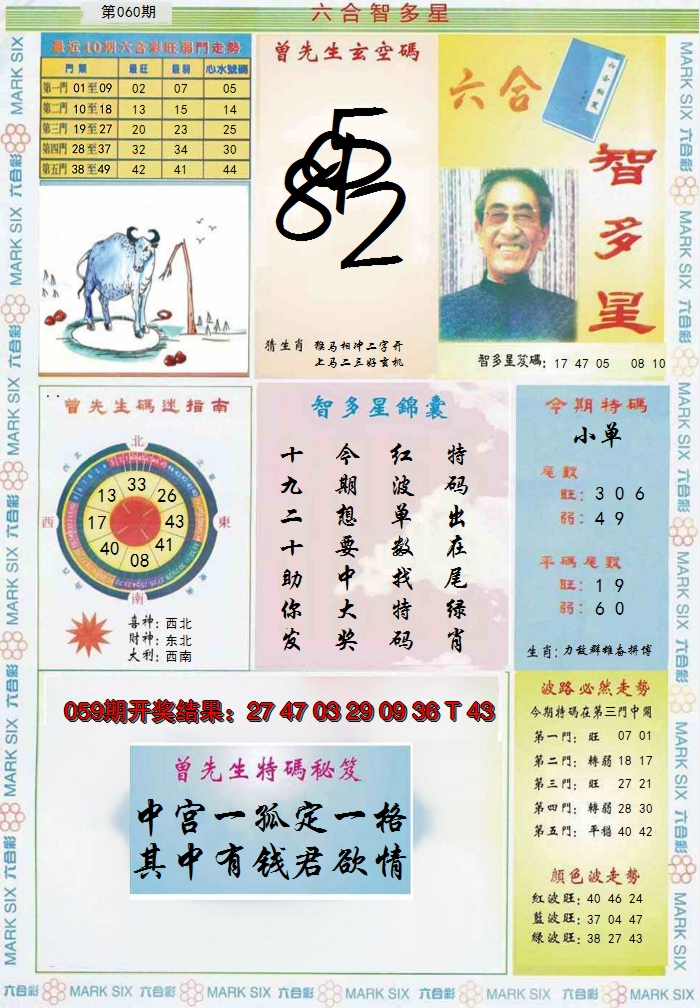 第060期
六合智多星
最近10期六合彩旺弱門走勢
門類 最旺 最弱 心水號碼
第一門 01至09 02 07 05
第二門 10至18 13 15 14
第三門 19至27 20 23 25
第四門 28至37 32 34 30
第五門 38至49 42 41 44
曾先生玄空碼
猜生肖 雞马相冲二字开
上马二三好玄机
六合
智多星
智多星笈碼: 17 47 05 08 10
曾先生碼迷指南
北
西北
東北
西
東
西南
東南
南
33
26
43
41
08
40
17
13
喜神: 西北
財神: 东北
大利: 西南
智多星錦囊
特码出在尾绿肖
红波单数找特码
今期想要中大奖
十九二十助你发
今期特碼
小单
尾數
旺: 3 0 6
弱: 4 9
平碼尾數
旺: 1 9
弱: 6 0
生肖: 力敌群雄奋拼博
059期开奖结果: 27 47 03 29 09 36 T 43
曾先生特碼秘笈
中宫一孤定一格
其中有钱君欲情
波路必然走勢
今期特碼在第三門中開
第一門: 旺 07 01
第二門: 轉弱 18 17
第三門: 旺 27 21
第四門: 轉弱 28 30
第五門: 平穩 40 42
顏色波走勢
紅波旺: 40 46 24
藍波旺: 37 04 47
綠波旺: 38 27 43
六合彩 MARK SIX 六合彩 MARK SIX 六合彩 MARK SIX 六合彩 MARK SIX 六合彩